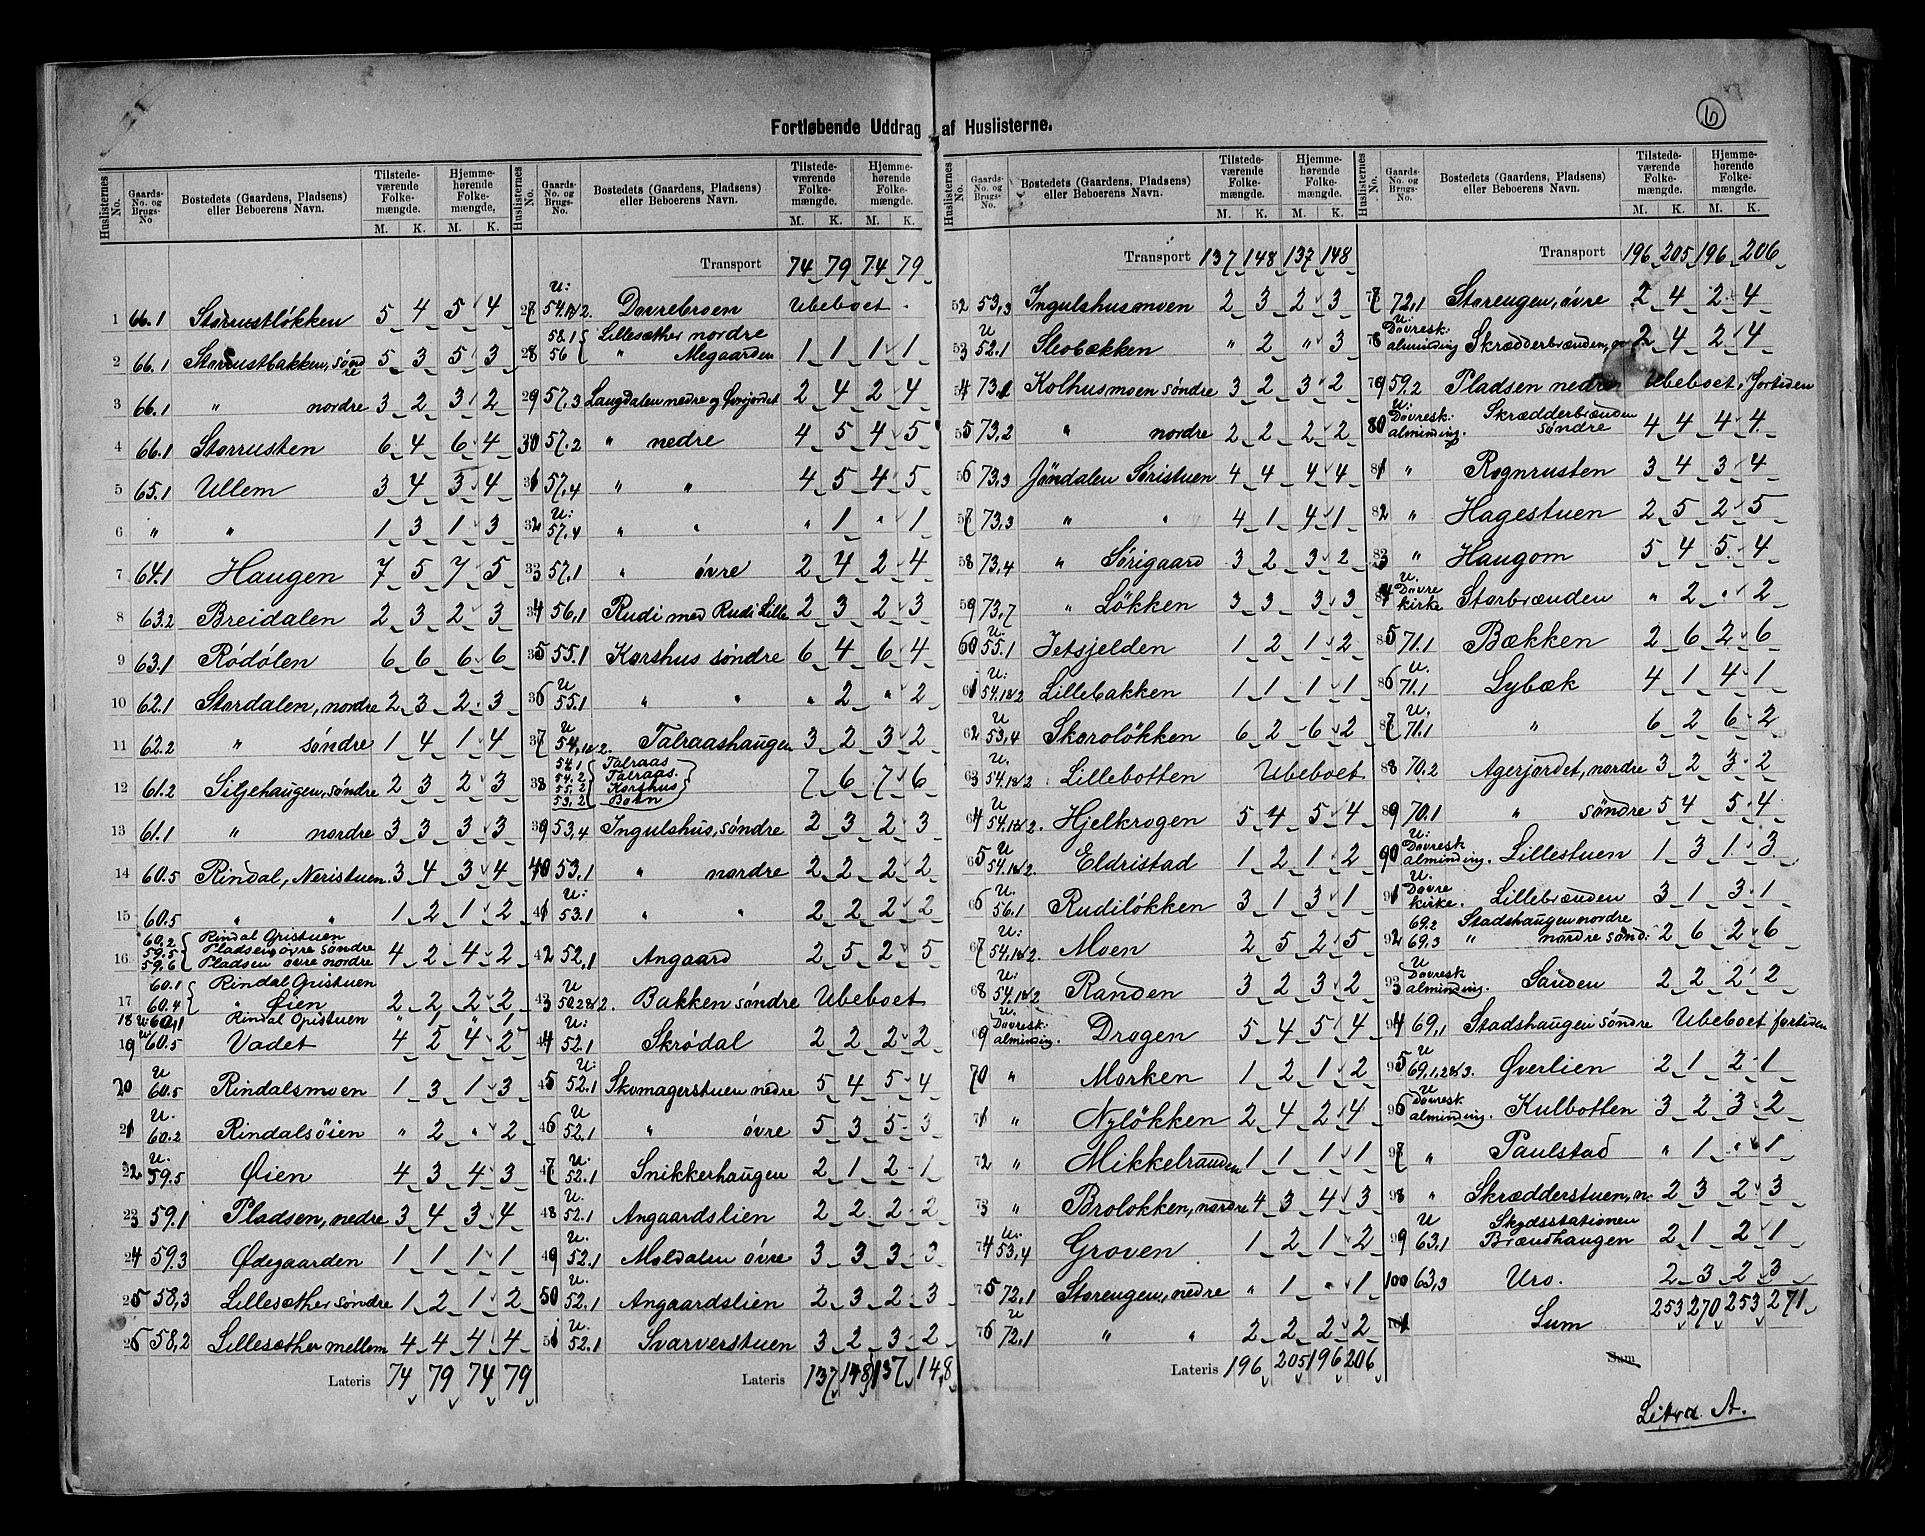 6
Fortløbende Uddrag af Huslisterne.
Huslisternes No. Gaards-No. og Brugs-No Bostedets (Gaardens, Pladsens) eller Beboerens Navn. Tilstede-værende Folke-mængde. M. K. Hjemme-hørende Folke-mængde. M. K.
1 66.1 Storrustløkken 5 4 5 4
2 66.1 Storrustbakken, søndre 5 3 5 3
3 66.1 " nordre 3 2 3 2
4 66.1 Storrusten 6 4 6 4
5 65.1 Ullem 3 4 3 4
6 " " 1 3 1 3
7 64.1 Haugen 7 5 7 5
8 63.2 Breidalen 2 3 2 3
9 63.1 Rødølen 6 6 6 6
10 62.1 Stordalen, nordre 2 3 2 3
11 62.2 " søndre 1 4 1 4
12 61.2 Siljehaugen, søndre 2 3 2 3
13 61.1 " nordre 3 3 3 3
14 60.5 Rindal, Neristuen 3 4 3 4
15 60.5 " " 1 2 1 2
60.2 Rindal Opistuen
16 59.5 Pladsen øvre søndre 4 2 4 2
59.6 Pladsen øvre nordre
60.1 Rindal Opistuen
17 60.4 " Øien 2 2 2 2
18 U: 60.1 Rindal Opistuen " 1 " 1
19 U 60.5 Vadet 4 5 4 5
20 U 60.5 Rindalsmoen 1 3 1 3
21 U. 60.2 Rindalsøien " 2 " 2
22 U. 59.5 Øien 4 3 4 3
23 59.1 Pladsen, nedre 3 4 3 4
24 59.3 Ødegaarden 1 1 1 1
25 58,3 Lillesæther søndre 1 2 1 2
26 58,2 Lillesæther mellem 4 4 4 4
Lateris 74 79 74 79
Huslisternes No. Gaards-No. og Brugs-No. Bostedets (Gaardens, Pladsens) eller Beboerens Navn. Tilstede-værende Folke-mængde. M. K. Hjemme-hørende Folke-mængde. M. K.
Transport 74 79 74 79
27 U: 54.1&2. Dovrebroen Ubeboet
58.1 Lillesæther nordre
28 56 " Megaarden 1 1 1 1
29 57.3 Laugdalen nedre og 2 4 2 4
30 57.2 " nedre 4 5 4 5
31 57.4 " " 4 5 4 5
32 U: 57.4 " " " 1 " 1
33 57.1 " øvre 2 4 2 4
34 56,1 Rudi med Rudi Lille 2 3 2 3
35 55.1 Korshus søndre 6 4 6 4
36 U 55.1 " " " 2 " 2
37 U 54,1&2. Talraashaugen 3 2 3 2
54.1 Talraas
54.2 Talraas.
38 55.2 Korshus 7 6 7 6
53.2 Boen
39 53,4 Ingulshus, søndre 2 3 2 3
40 53.1 " nordre 2 2 2 2
41 U: 53.1 " " 2 2 2 2
42 52,1 Angaard 2 5 2 5
43 U 50.2&2. Bakken søndre Ubeboet
44 U: 52.1 Skrødal 2 2 2 2
45 U: 52.1 Skomagerstuen nedre 5 4 5 4
46 U 52.1 " øvre 5 3 5 3
47 U: 52.1 Snikkerhaugen 2 1 2 1
48 U. 52.1 Angaardslien 2 2 2 2
49 U. 52.1 Moldalen øvre 3 3 3 3
50 U. 52.1 Angaardslien 2 3 2 3
51 U. 52.1 Svarverstuen 3 2 3 2
Lateris 137 148 137 148
Huslisternes No. Gaards-No. og Brugs-No. Bostedets (Gaardens, Pladsens) eller Beboerens Navn. Tilstede-værende Folke-mængde. M. K. Hjemme-hørende Folke-mængde. M. K.
Transport 137 148 137 148
52 53,3 Ingulshusmoen 2 3 2 3
53 U 52.1 Slobækken " 2 " 3
54 73.1 Kolhusmoen søndre 3 2 3 2
55 73,2 " nordre 2 2 2 2
56 73,3 Jøndalen Søristuen 4 4 4 4
57 73.3 " " 4 1 4 1
58 73,4 " Sørigaard 3 2 3 2
59 73,7 " Løkken 3 3 3 3
60 U. 55.1 Jetsjelden 1 2 1 2
61 U. 54,1&2 Lillebakken 1 1 1 1
62 U 53,4 Skoroløkken 6 2 6 2
63 U. 54,1&2 Lillebotten Ubeboet
64 U 54.1&2. Hjelkrogen 5 4 5 4
65 U 54.1&2. Eldristad 1 2 1 2
66 U. 56.1 Rudiløkken 3 1 3 1
67 U: 54,1&2. Moen 2 5 2 5
68 U: 54.1&2 Randen 3 2 3 2
69 U. Dovresk. alminding. Drogen 5 4 5 4
70 " Marken 1 2 1 2
71 " Nyløkken 2 4 2 4
72 " Mikkelranden 1 1 1 1
73 " Broløkken, nordre 4 3 4 3
74 U. 53,4 Groven 1 2 1 2
75 72,1 Storengen, nedre " 1 " 1
76 U 72,1 " " 2 2 2 2
Lateris 196 205 196 206
Huslisternes No. Gaards-No. og Brugs-No. Bostedets (Gaardens, Pladsens) eller Beboerens Navn. Tilstede-værende Folke-mængde. M. K. Hjemme-hørende Folke-mængde. M. K.
Transport 196 205 196 206
77 72,1 Storengen, øvre 2 4 2 4
78 U: Dovresk: alminding Skrædderbrænden, 2 4 2 4
79 59.2 Pladsen nedre Ubeboet, fortiden
80 U: Dovresk: alminding. Skrædderbrænden søndre 4 4 4 4
81 " Rognrusten 3 4 3 4
82 " Hagestuen 2 5 2 5
83 " Haugom 5 4 5 4
84 U. Dovre kirke Storbrænden " 2 " 2
85 71.1 Bækken 2 6 2 6
86 U. 71.1 Lybæk 4 1 4 1
87 U. 71.1 " 6 2 6 2
88 70.2 Agerjordet, nordre 3 2 3 2
89 70.1 " søndre 5 4 5 4
90 U: Dovresk alminding. Lillestuen 1 3 1 3
91 U. Dovre kirke. Lillebrænden 3 1 3 1
69.2 Stadshaugen nordre
92 69.3 " nordre sønd: 2 6 2 6
93 U Dovresk alminding. Sanden 2 2 2 2
94 69,1 Stadshaugen søndre Ubeboet fortiden
95 U 69.1.2&3. Øverlien 2 1 2 1
96 U Dovresk alminding. Kulbotten 3 2 3 2
97 " Paulstad " 1 " 1
98 " Skrædderstuen, n. 2 3 2 3
99 U 63.1 Skydsstationen Brændhaugen 2 1 2 1
100 63,3 Uro. 2 3 2 3
101 Sum 253 270 253 271
Sum
Litra A.